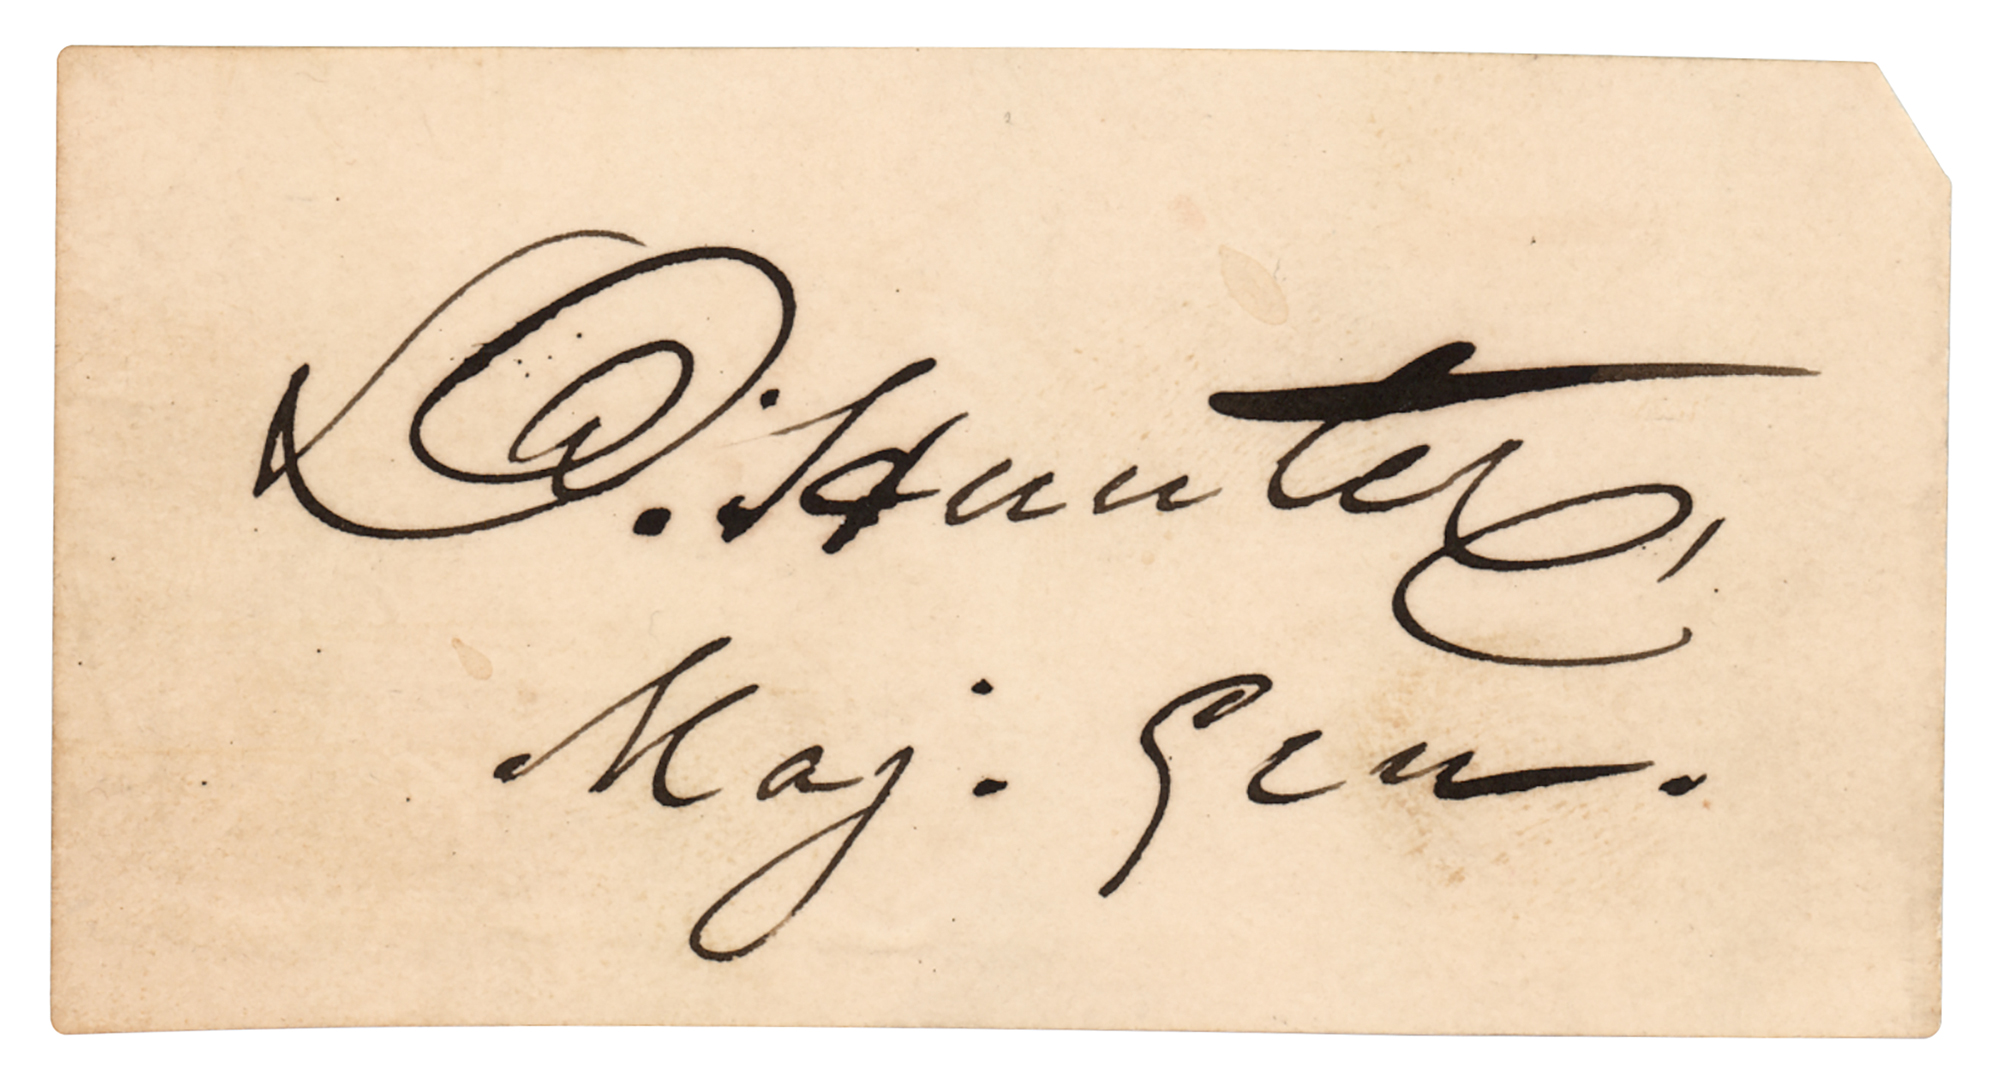 D. Hunter
Maj. Gen.